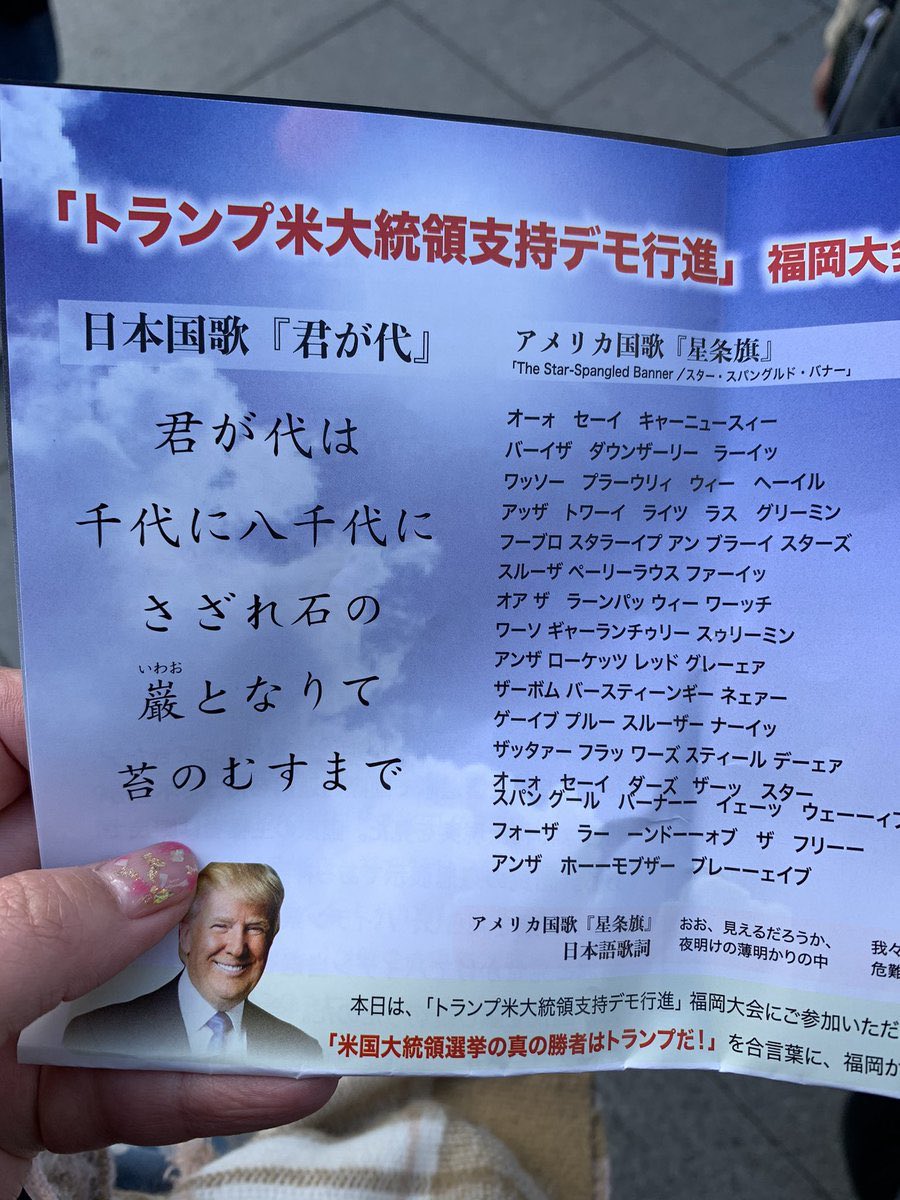 「トランプ米大統領支持デモ行進」 福岡大会
日本国歌『君が代』
君が代は
千代に八千代に
さざれ石の
いわお
巌となりて
苔のむすまで
アメリカ国歌『星条旗』
「The Star-Spangled Banner /スター・スパングルド・バナー」
オーォ セーイ キャーニュースィー
バーイザ ダウンザーリー ラーイッ
ワッソー プラーウリィ ウィー ヘーイル
アッザ トワーイ ライツ ラス グリーミン
フーブロ スタラーイプ アン ブラーイ スターズ
スルーザ ペーリーラウス ファーイッ
オア ザ ラーンパッ ウィー ワーッチ
ワーソ ギャーランチゥリー スゥリーミン
アンザ ローケッツ レッド グレーェア
ザーボム バースティーンギー ネェアー
ゲーイブ プルー スルーザー ナーイッ
ザッタァー フラッ ワーズ スティール デーェア
オーォ セーイ ダーズ ザーッ スター
スパン グール バーナーー イェーツ ウェーーィブ
フォーザ ラー ーンドーーォブ ザ フリーー
アンザ ホーーモブザー ブレーーェイブ
アメリカ国歌『星条旗』
日本語歌詞
おお、見えるだろうか、
夜明けの薄明かりの中
我々
危難
本日は、「トランプ米大統領支持デモ行進」福岡大会にご参加いただ
「米国大統領選挙の真の勝者はトランプだ!」を合言葉に、福岡か